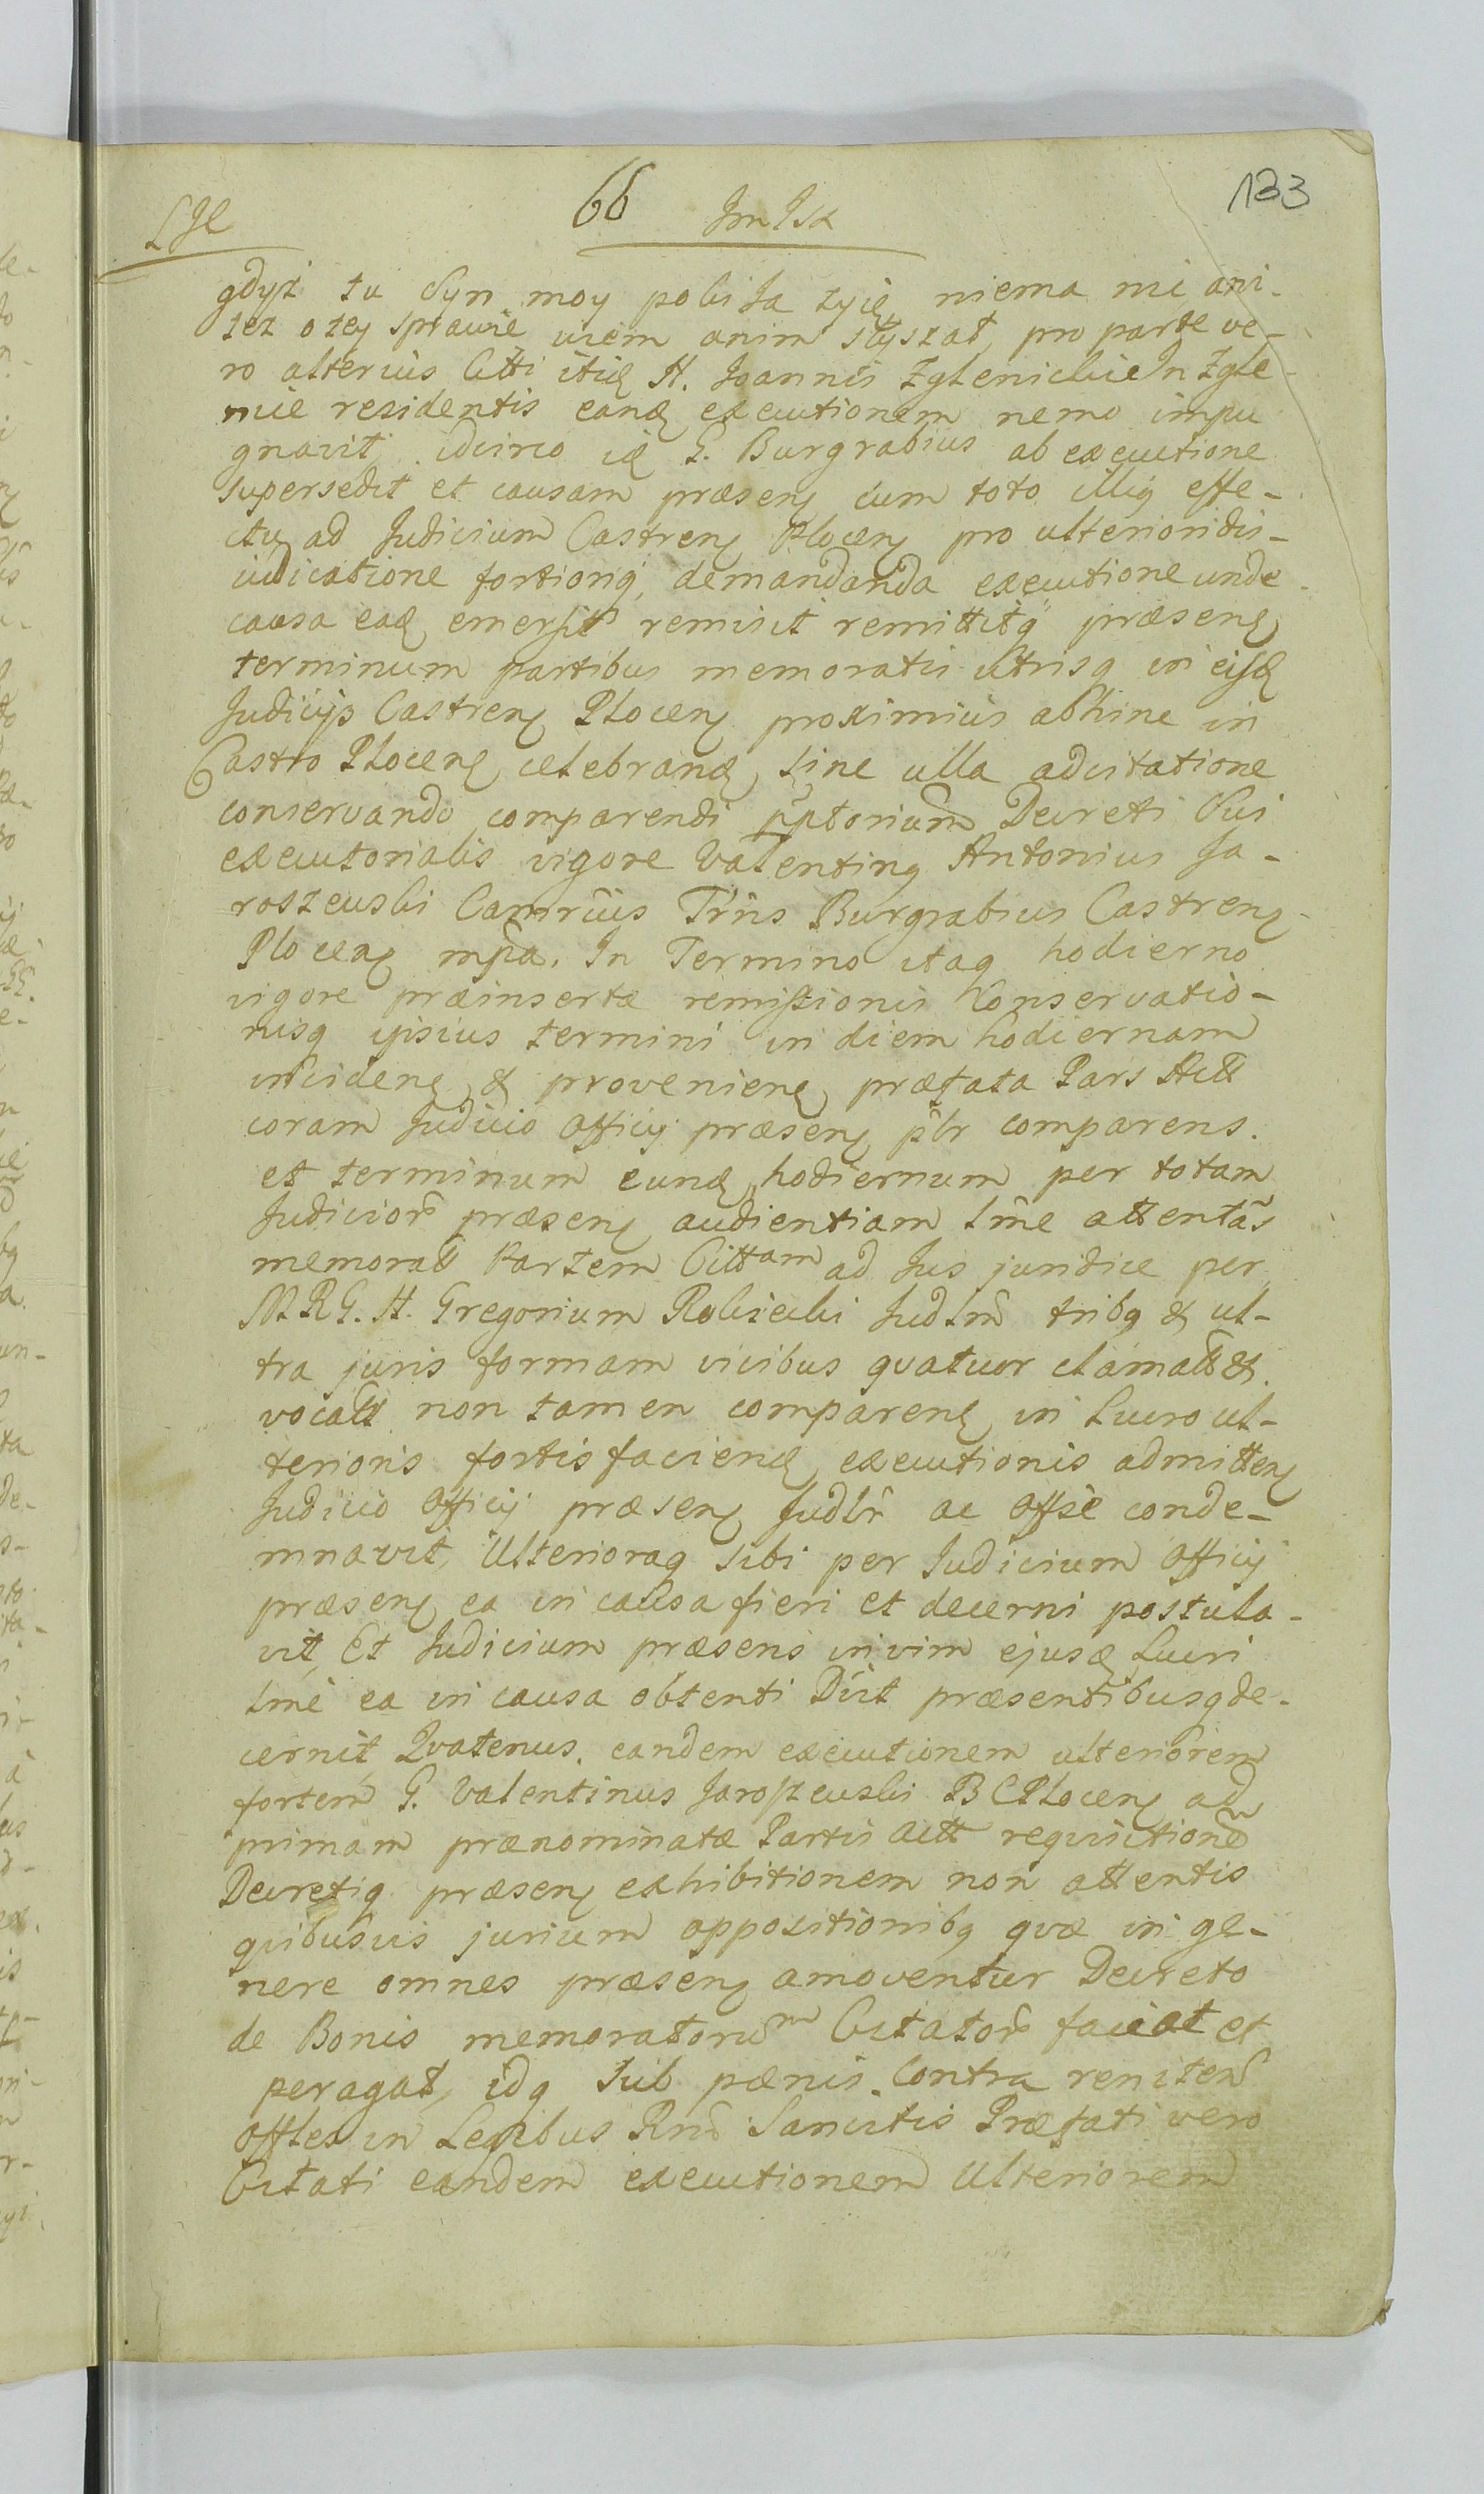 66
133
gdysz tu Syn moy poki Ja żyię niema nic ani-
tez o tey sprawie wiem anim słyszał, pro parte ve-
ro alterius Citti itid H. Joannis Zglenicki in Zgle-
nice residentis eand executionem nemo impu
gnavit, idcirco id G. Burgrabius ab executione
supersedit et causam præsen cum toto illiq effe-
ctu ad Judicium Castren Plocen pro ulteriori dis-
iudicatione fortioriq demandanda executione unde
causa ead emersit remisit remittitq præsens
terminum partibus memoratis utrisq in eisd
Judicijs Castren Plocen proximius abhinc in
Castro Plocen celebrand sine ulla adcitatione
conservando comparendi pptorium Decreti Sui
executorialis vigore Valentinq Antonius Ja-
roszewski Camrius Trins Burgrabius Castren
Plocen mpa. In Termino itaq hodierno
vigore præinsertæ remissionis Conservatio-
nisq ipsius termini in diem hodiernam
inciden & provenien præfata Pars Actt
coram Judicio Officij præsen plr comparens.
et terminum eund hodiernum per totam
Judicior præsen audientiam lme attentãs
memorati Partem Cittam ad Jus juridice per
M. R. G. H. Gregorium Robiecki Judlm tribq & ul-
tra juris formam vicibus quatuor clamatt &
vocatt non tamen comparen in Lucro ul-
terioris fortis faciend executionis admitten
Judicio Officij præsen Judlr ac Offse conde-
mnavit, Ulterioraq sibi per Judicium Officij
præsen ea in causa fieri et decerni postula-
vit, Et Judicium præsens in vim ejusd Lucri
lme ea in causa obtenti Dict præsentibusq de-
cernit, Quatenus eandem executionem ulteriorem
fortem G. Valentinus Jaroszewski B C Plocen ad
primam prænominatæ Partis Actt requisitionem
Decretiq præsen exhibitionem non attentis
quibusvis jurium oppositionibq quæ in ge-
nere omnes præsen amoventur Decreto
de Bonis memoratorum Citator faciat et
peragat, idq sub pænis Contra reniten
Offles in Legibus Rni Sancitis Præfati vero
Citati eandem executionem ulteriorem